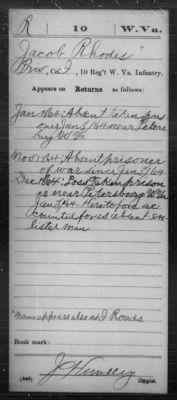 R 10 W.Va.
Jacob Rhodes
Priv., Co. I, 10 Reg't W. Va. Infantry.
Appears on Returns as follows:
Jan /64: Absent taken pris
oner Jan 3/64 near Peters
burg W.Va.
Nov /64: Absent prisoner
of war since Jan 3/64
Dec /64: Loss Taken prison
er near Petersbourg W.Va.
Jan 3/64. Heretofore ac
counted for as absent en
listed man
"Name appears also as J Roads
Book mark:
(546) Copyist.